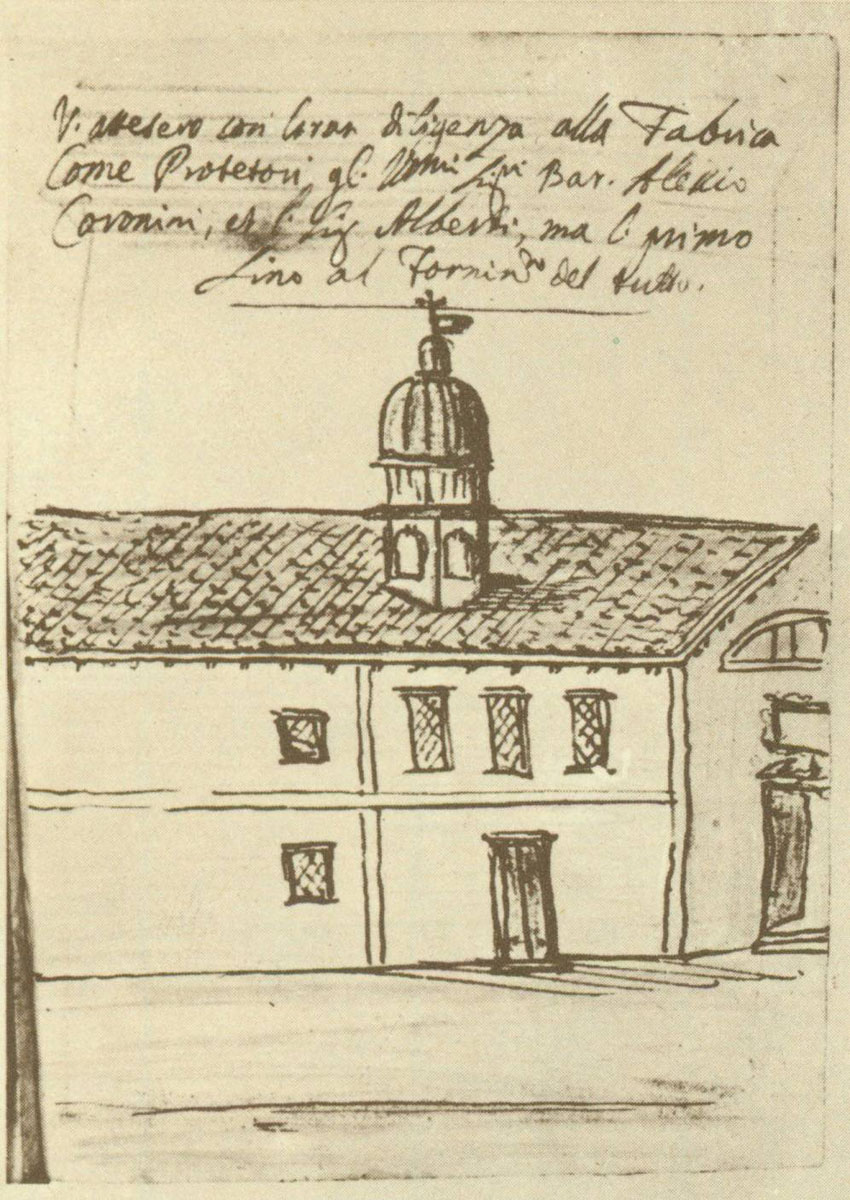 V. attesero con Gran diligenza alla Fabrica
Come Protetori gl. Sig.ri Bar. Alessio
Coronini, et l. Sig Alberti, ma l. primo
sino al del tutto.